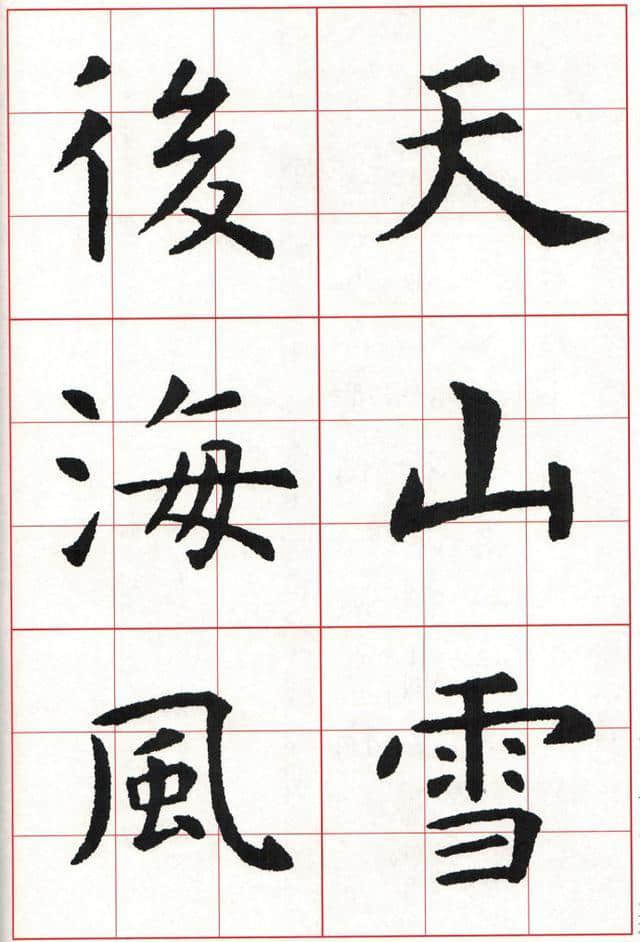 天山雪
後海風